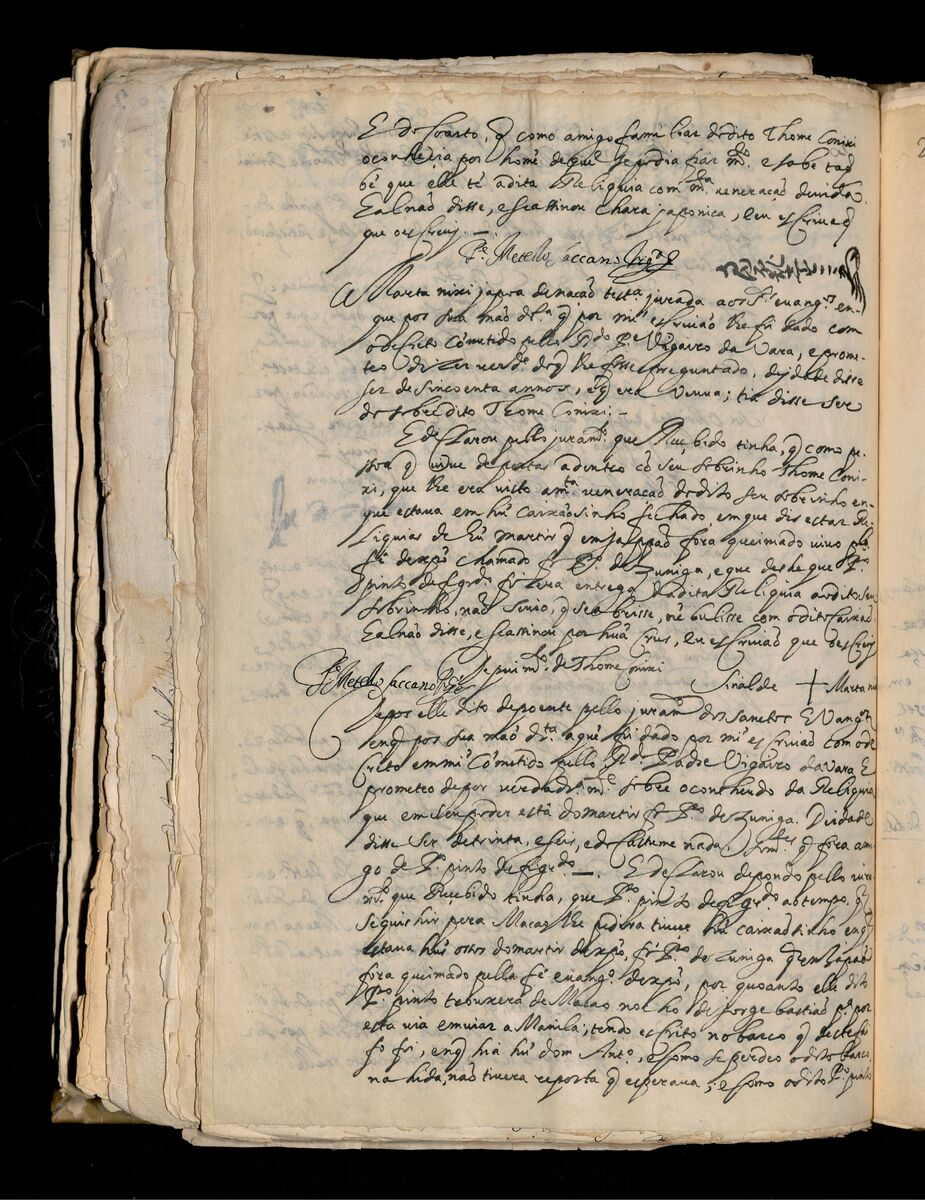 E do Coarto, q̃ como amigo familiar do dito Thome Conixi
o conhecia por homẽ de que se podia fiar m.to e sabe tao
bẽ que elle tẽ a dita Reliquia com m.ta veneração devida.
E al não disse, e se assinou chara japonica, e eu escrivão
que o escrevj. —
P.e Metello Saccano Vig.ro
Marta nixi japoa de nação test.a jurada aos S.tos evang.os en-
que pos sua mão dr.ta q̃ por mi escrivão lhe foi dado com
o decreto cometido pello R.do P.e Vigairo da Vara, e prome-
teo dizer verd.e do q̃ lhe fosse preguntado, de jdade disse
ser de sincoenta annos, e q̃ era veuva; tia disse ser
do sobredito Thome Conixi. —
E declarou pello juram.to que Recebido tinha, q̃ como pe-
ssoa q̃ vive de porta adentro cõ seu sobrinho Thome Coni-
xi, que lhe era visto a m.ta veneração do dito seu sobrinho en-
que estava em hũ caixãosinho fechado, em que dis estar Re-
liquias de hũ martir q̃ em jappão fora queimado vivo pla
fé de xpõ chamado fr. P.o de Zuniga, e que desde que P.o
pinto de figr.do fizera entrega da dita Reliquia ao dito seu
sobrinho, não senio, q̃ se abrisse, nẽ bulisse com o dito caixão
E al não disse, e se assinou por huã Crus, e eu escrivão que o escrevj
Seguim.to de Thome Conixi
P.e Metello Saccano Vig.ro Sinal de + Marta nixi
Segor elle dito depoente pello juram.to dos sanctos Evang.os
em q̃ pos sua mão dr.ta aqui foi dado por mi escrivão com o de-
creto em mi cometido pello R.do Padre Vigairo da Vara E
prometeo depor verdadr.am.te sobre o conthendo da Reliquia
que em seu poder está do martir fr. P.o de Zuniga. De idade
disse ser de trinta, e seis, e do custume nada. Som.tes q̃ fora ami-
go de P.o pinto de figr.do —. E declarou depondo pello jura
m.to que Recebido tinha, que P.o pinto de figr.do ao tempo, q̃
se quis hir pera Macao lhe pedira tivese hũ caixaosinho em q̃
estava hũs ossos do martir de xpõ fr. P.o de Zuniga q̃ em Japão
fora queimado pella fé evang.a de xpõ, por quoanto elle dito
P.o pinto te buxera de Macao no lho de jorge bastião p.a por
esta via emviar a Manila; tendo escrito no barco q̃ deste
fo foi, em q̃ hia hũ dom Ant.o, e como se perdeo o dito barco,
na hida, não tivera reposta q̃ esperava; e como o dito P.o pinto